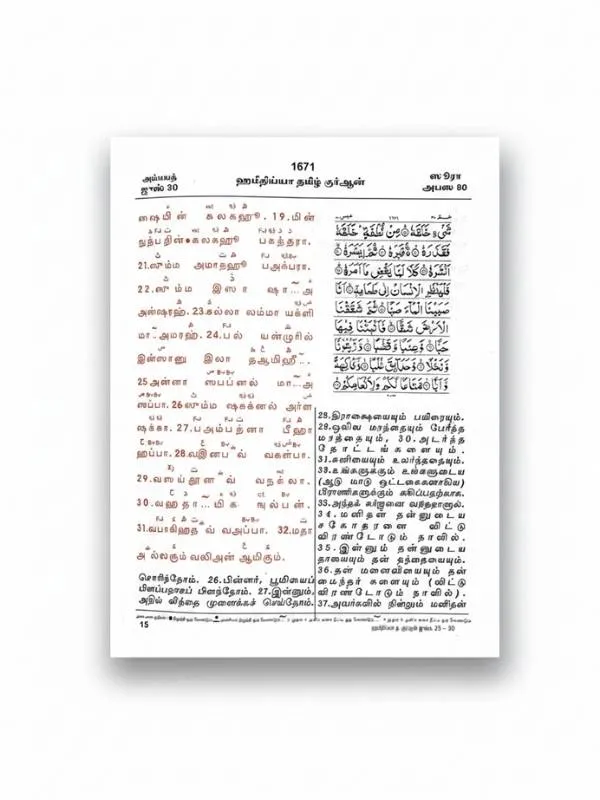 1671
அம்யயத்
ஜுஸ் 30
ஹமீதிய்யா தமிழ் குர்ஆன்
ஸூரா
அபஸ 80
ஷைமின் கலகஹூ. 19.மின்
நுத்பதின் கலகஹூ பகத்தரா.
21.ஸும்ம அமாதஹூ பஅக்பரா.
22.ஸும்ம இஸா ஷா...அ
அன்ஷரஹ். 23.கல்லா லம்மா யக்ளி
மா..அமரஹ். 24.பல் யன்ழுரில்
இன்ஸானு இலா தஆமிஹீ..
25 அன்னா ஸபப்னல் மா..அ
ஸப்பா. 26 ஸும்ம ஷகக்னல் அர்ள
ஷக்கா. 27.பஅம்பத்னா பீஹா
ஹப்பா. 28.வஇனப வ் வகள்பா.
29.வஸய்தூன வ் வநக்லா.
30.வஹதா...மிக ஙுல்பன்.
31.வபாகிஹத வ் வஅப்பா. 32.மதா
அ ல்லகும் வலிஅன் ஆமிகும்.
شَىْءٍ خَلَقَهٗ مِنْ نُّطْفَةٍ خَلَقَهٗ
فَقَدَّرَهٗ ثُمَّ يَسَّرَهٗ
اَنْشَرَهٗ كَلَّا لَمَّا يَقْضِ مَآ اَمَرَهٗ
فَلْيَنْظُرِ الْاِنْسَانُ اِلٰى طَعَامِهٖۤ اَنَّا
صَبَبْنَا الْمَآءَ صَبًّا ثُمَّ شَقَقْنَا
الْاَرْضَ شَقًّا فَاَنْبَتْنَا فِيْهَا
حَبًّا وَّعِنَبًا وَّقَضْبًا وَّزَيْتُوْنًا
وَّنَخْلًا وَّحَدَآئِقَ غُلْبًا وَّفَاكِهَةً
وَّاَبًّا مَّتَاعًا لَّكُمْ وَلِاَنْعَامِكُمْ
சொரிந்தோம். 26. பின்னர், பூமியைப்
பிளப்பதாகப் பிளந்தோம். 27.இன்னும்,
அதில் வித்தை முளைக்கச் செய்தோம்.
28.திராக்ஷையையும் பயிரையும்.
29.ஒலிவ மரத்தையும் பேரீத்த
மரத்தையும், 30. அடர்ந்த
தோட்டங்களையும்.
31.கனியையும் உலர்ந்ததையும்.
32.உங்களுக்கும் உங்களுடைய
(ஆடு மாடு ஒட்டகைகளாகிய)
பிராணிகளுக்கும் சுகிப்பதற்காக.
33.அந்தக் கர்ஜனை வந்ததானால்.
34.மனிதன் தன்னுடைய
சகோதரனை விட்டு
விரண்டோடும் நாளில்.
35.இன்னும் தன்னுடைய
தாயையும் தன் தந்தையையும்.
36.தன் மனைவியையும் தன்
மைந்தர்களையும் (விட்டு
விரண்டோடும் நாளில்).
37.அவர்களில் நின்றும் மனிதன்
15
ஹமீதிய்யா த. குர்ஆன் ஜுஸ்வு. 25 - 30